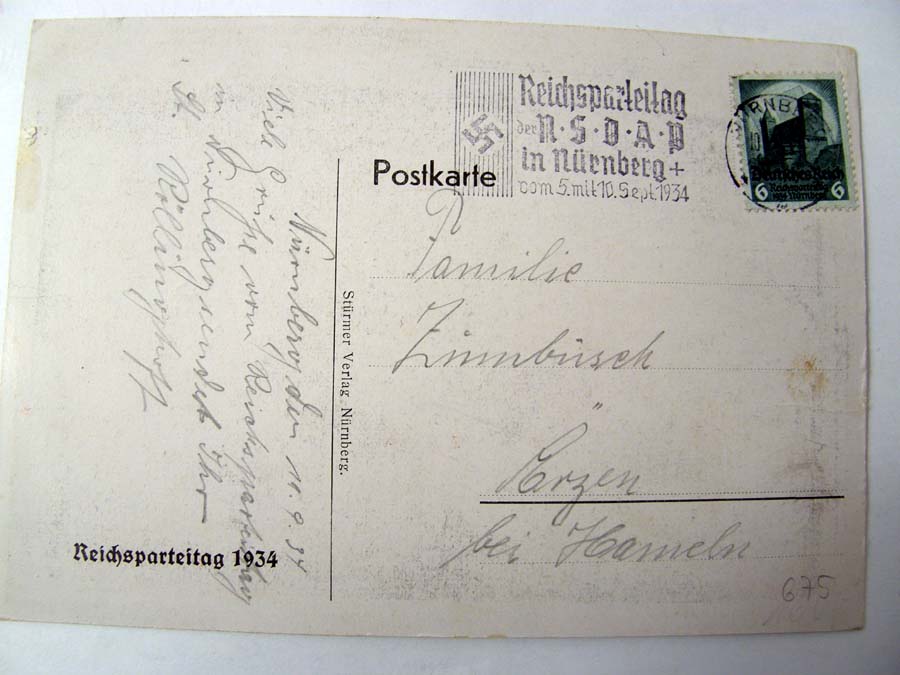 Reichsparteitag
der N·S·D·A·P
in Nürnberg +
vom 5. mit 10. Sept. 1934
NÜRNB
10
Deutsches Reich
6 Reichsparteitag 6
1934 Nürnberg
Postkarte
Familie
Zinnbüsch
Ärzen
bei Hameln
675
Stürmer Verlag Nürnberg.
Nürnberg den 10.9.34
Viele Grüße vom Reichsparteitag
in Nürnberg sendet Ihr
Reichsparteitag 1934